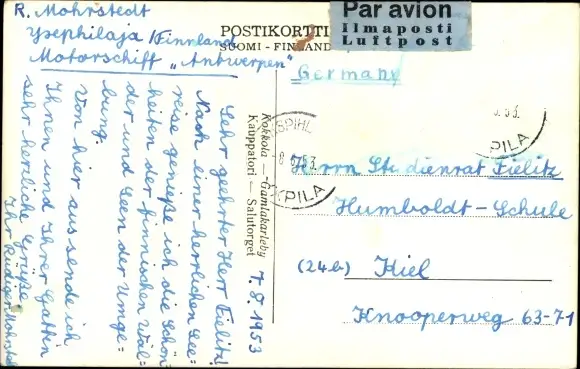 R. Mohrstedt
Ypephilaja / Finnland
Motorschiff „Antwerpen"
POSTIKORTTI
SUOMI - FINLAND
Par avion
Ilmaposti
Luftpost
Germany
Herrn Studienrat Fielitz
Humboldt-Schule
(24b) Kiel
Knooperweg 63-71
SPIHL
8.53
PILA
PILA
Kokkola — Gamlakarleby
Kauppatori — Salutorget
7.8.1953
Sehr geehrter Herr Fielitz!
Nach einer herrlichen See=
reise genieße ich die Schön=
heiten der finnischen Wäl=
der und Seen der Umge=
bung.
Von hier aus sende ich
Ihnen und Ihrer Gattin
sehr herzliche Grüße
Ihr Rüdiger Mohrstedt